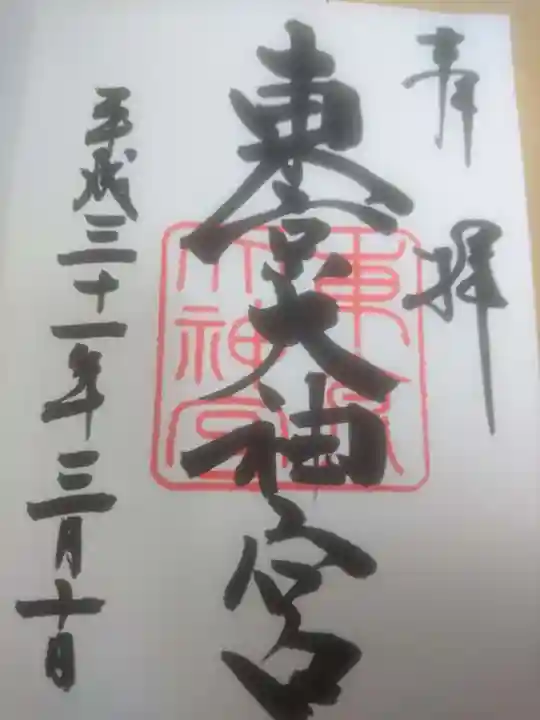 奉拝
東大神宮
大神宮
平成三十一年三月十日